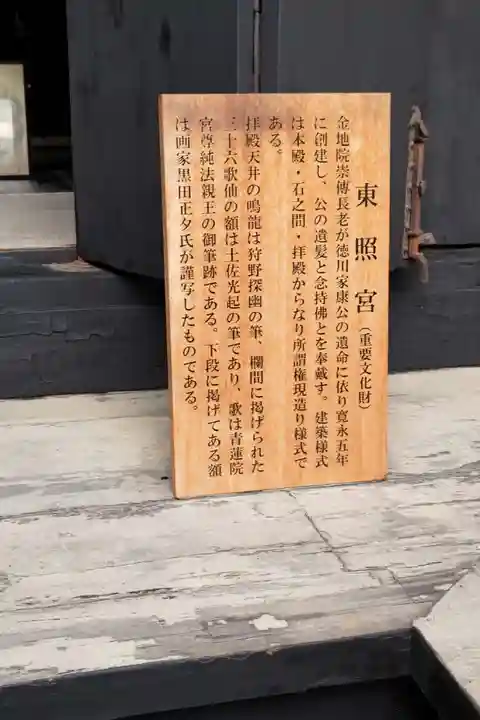 東照宮（重要文化財）
金地院崇傳長老が徳川家康公の遺命に依り寛永五年
に創建し、公の遺髪と念持佛とを奉戴す。建築様式
は本殿・石之間・拝殿からなり所謂権現造り様式で
ある。
拝殿天井の鳴龍は狩野探幽の筆、欄間に掲げられた
三十六歌仙の額は土佐光起の筆であり、歌は青蓮院
宮尊純法親王の御筆跡である。下段に掲げてある額
は画家黒田正夕氏が謹写したものである。